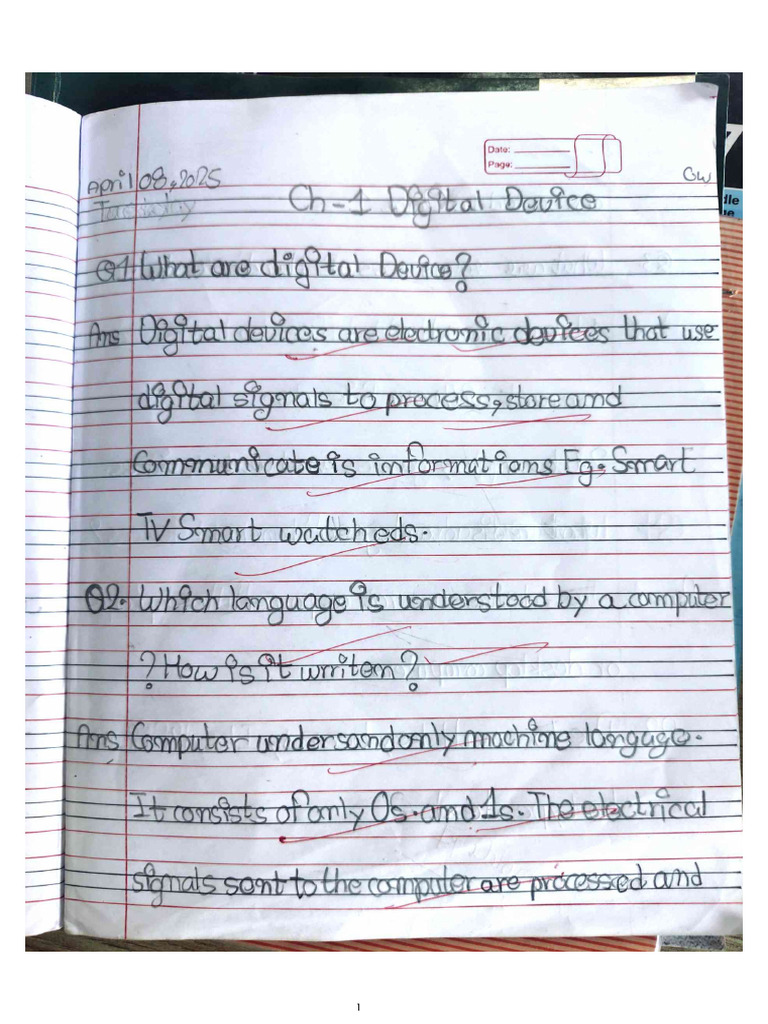 Date:
Page:
April 08, 2025
CW
Tuesday
Ch-1 Digital Device
Q1 What are digital Device?
Ans Digital devices are electronic devices that use
digital signals to process, store and
Communicate is informations Eg. Smart
TV Smart watcheds.
Q2. Which language is understood by a computer
? How is it writen?
Ans Computer undersandonly machine langugo.
It consists of only 0s. and 1s. The electrical
signals sent to the computer are processed and
1